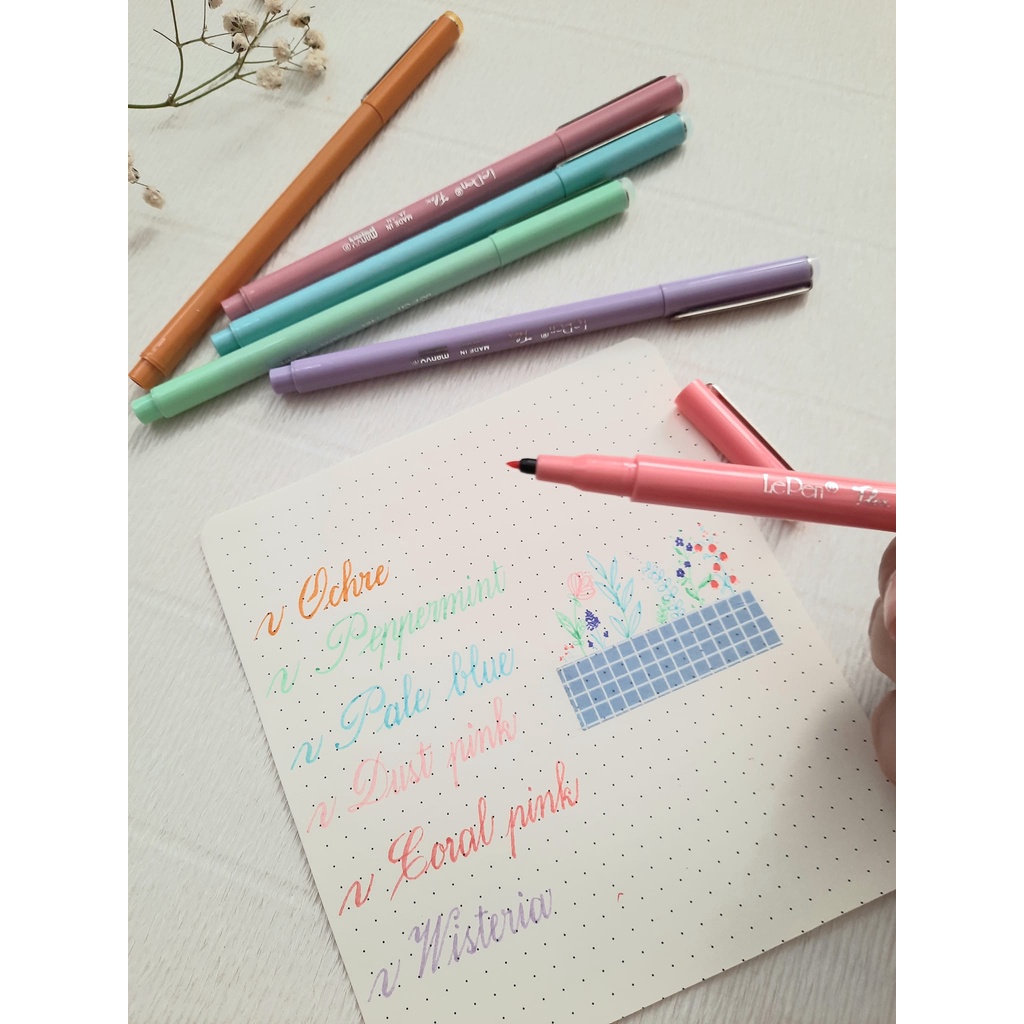 LePen® Flex
MADE IN
marvy®
LePen® Flex
MADE IN
marvy®
LePen Flex
Ochre
Peppermint
Pale blue
Dust pink
Coral pink
Wisteria